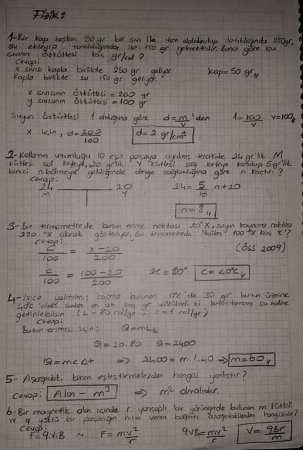 Fizik:
1-Bir kap boşken 50 gr bir sıvı ile tam doldurulup tartıldığında 250gr,
su ekleyip tartıldığında ise 150 gr gelmektedir. Buna göre bu
sıvının özkütlesi kaç gr/cm³ ?
Cevap:
X sıvısı kapla birlikte 250 gr geliyor. kap=50gr
Kapla birlikte su 150 gr geliyor.
X sıvısının özkütlesi = 200 gr
y sıvısının özkütlesi = 100 gr
Suyun özkütlesi 1 olduğuna göre d=m/v 'den 1=100/v v=100
x için, d=200/100 d=2 gr/cm³
2-Kolların uzunluğu 10 eşit parçaya ayrılmış terazide 24 gr'lık M
kütlesi sol kefeye, 20 gr'lık Y kütlesi sağ kefeye konulup 5 gr'lık
binici n. bölmeye geldiğinde denge sağlandığına göre n kaçtır?
Cevap:
24 M 20 Y 24=5/10.n+20
n=8
3-Bir termometrede buzun erime noktası 20°X, suyun kaynama noktası
220 °X olarak gösteriliyor. Bu termometrede 100 °X kaç °C?
Cevap: (ÖSS 2009)
C/100 = x-20/200
C/100 = 100-20/200 2C=80° C=40°C
4-Isıca yalıtılmış kapta bulunan 0°C de 30 gr buzun üzerine
(L=80 cal/gr, c=1 cal/gr)
Cevap:
Buzun erimesi için: Q=mL
Q=30.80 Q=2400
Q=mc∆t => 2400=m.1.40 => m=60
5- Aşağıdaki birim eşleştirmelerden hangisi yanlıştır?
Cevap: Alan - m³ => m² olmalıdır.
6-Bir magnetik alan içinde r yarıçaplı bir yörüngede bulunan m kütleli
ve q yüklü bir parçacığın hızını veren bağıntı aşağıdakilerden hangisidir?
Cevap:
F=q.V.B ~ F=mv²/r qVB=mv²/r V=qBr/m